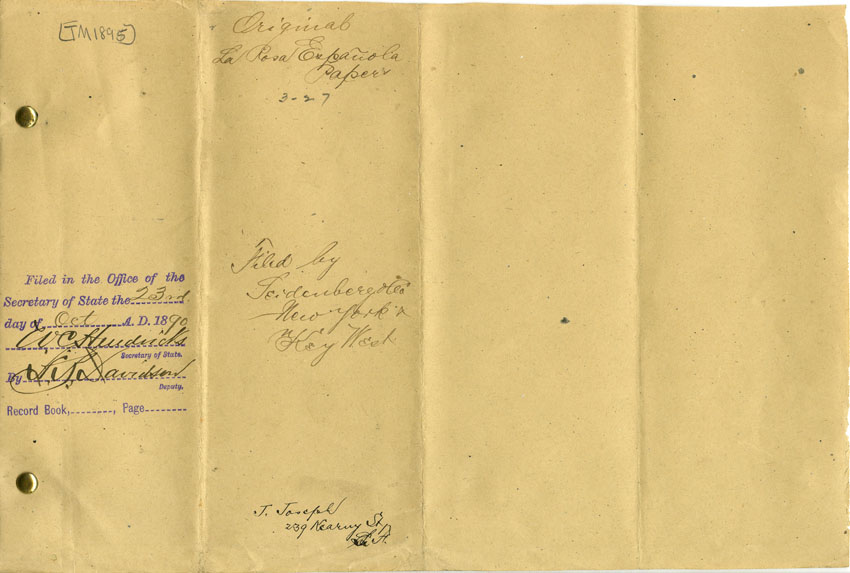 [TM1895]
Original
La Rosa Española
Papers
3-27
Filed in the Office of the
Secretary of State the 23rd
day of Oct A. D. 1890
W C Hendricks
Secretary of State.
By Davidson
Deputy.
Record Book, , Page
Filed by
Seidenberg & Co
New York &
Key West
J. Joseph
239 Kearny St
S. F.